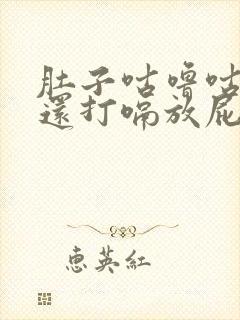 肚子咕嚕咕
還打嗝放屁
惠英紅